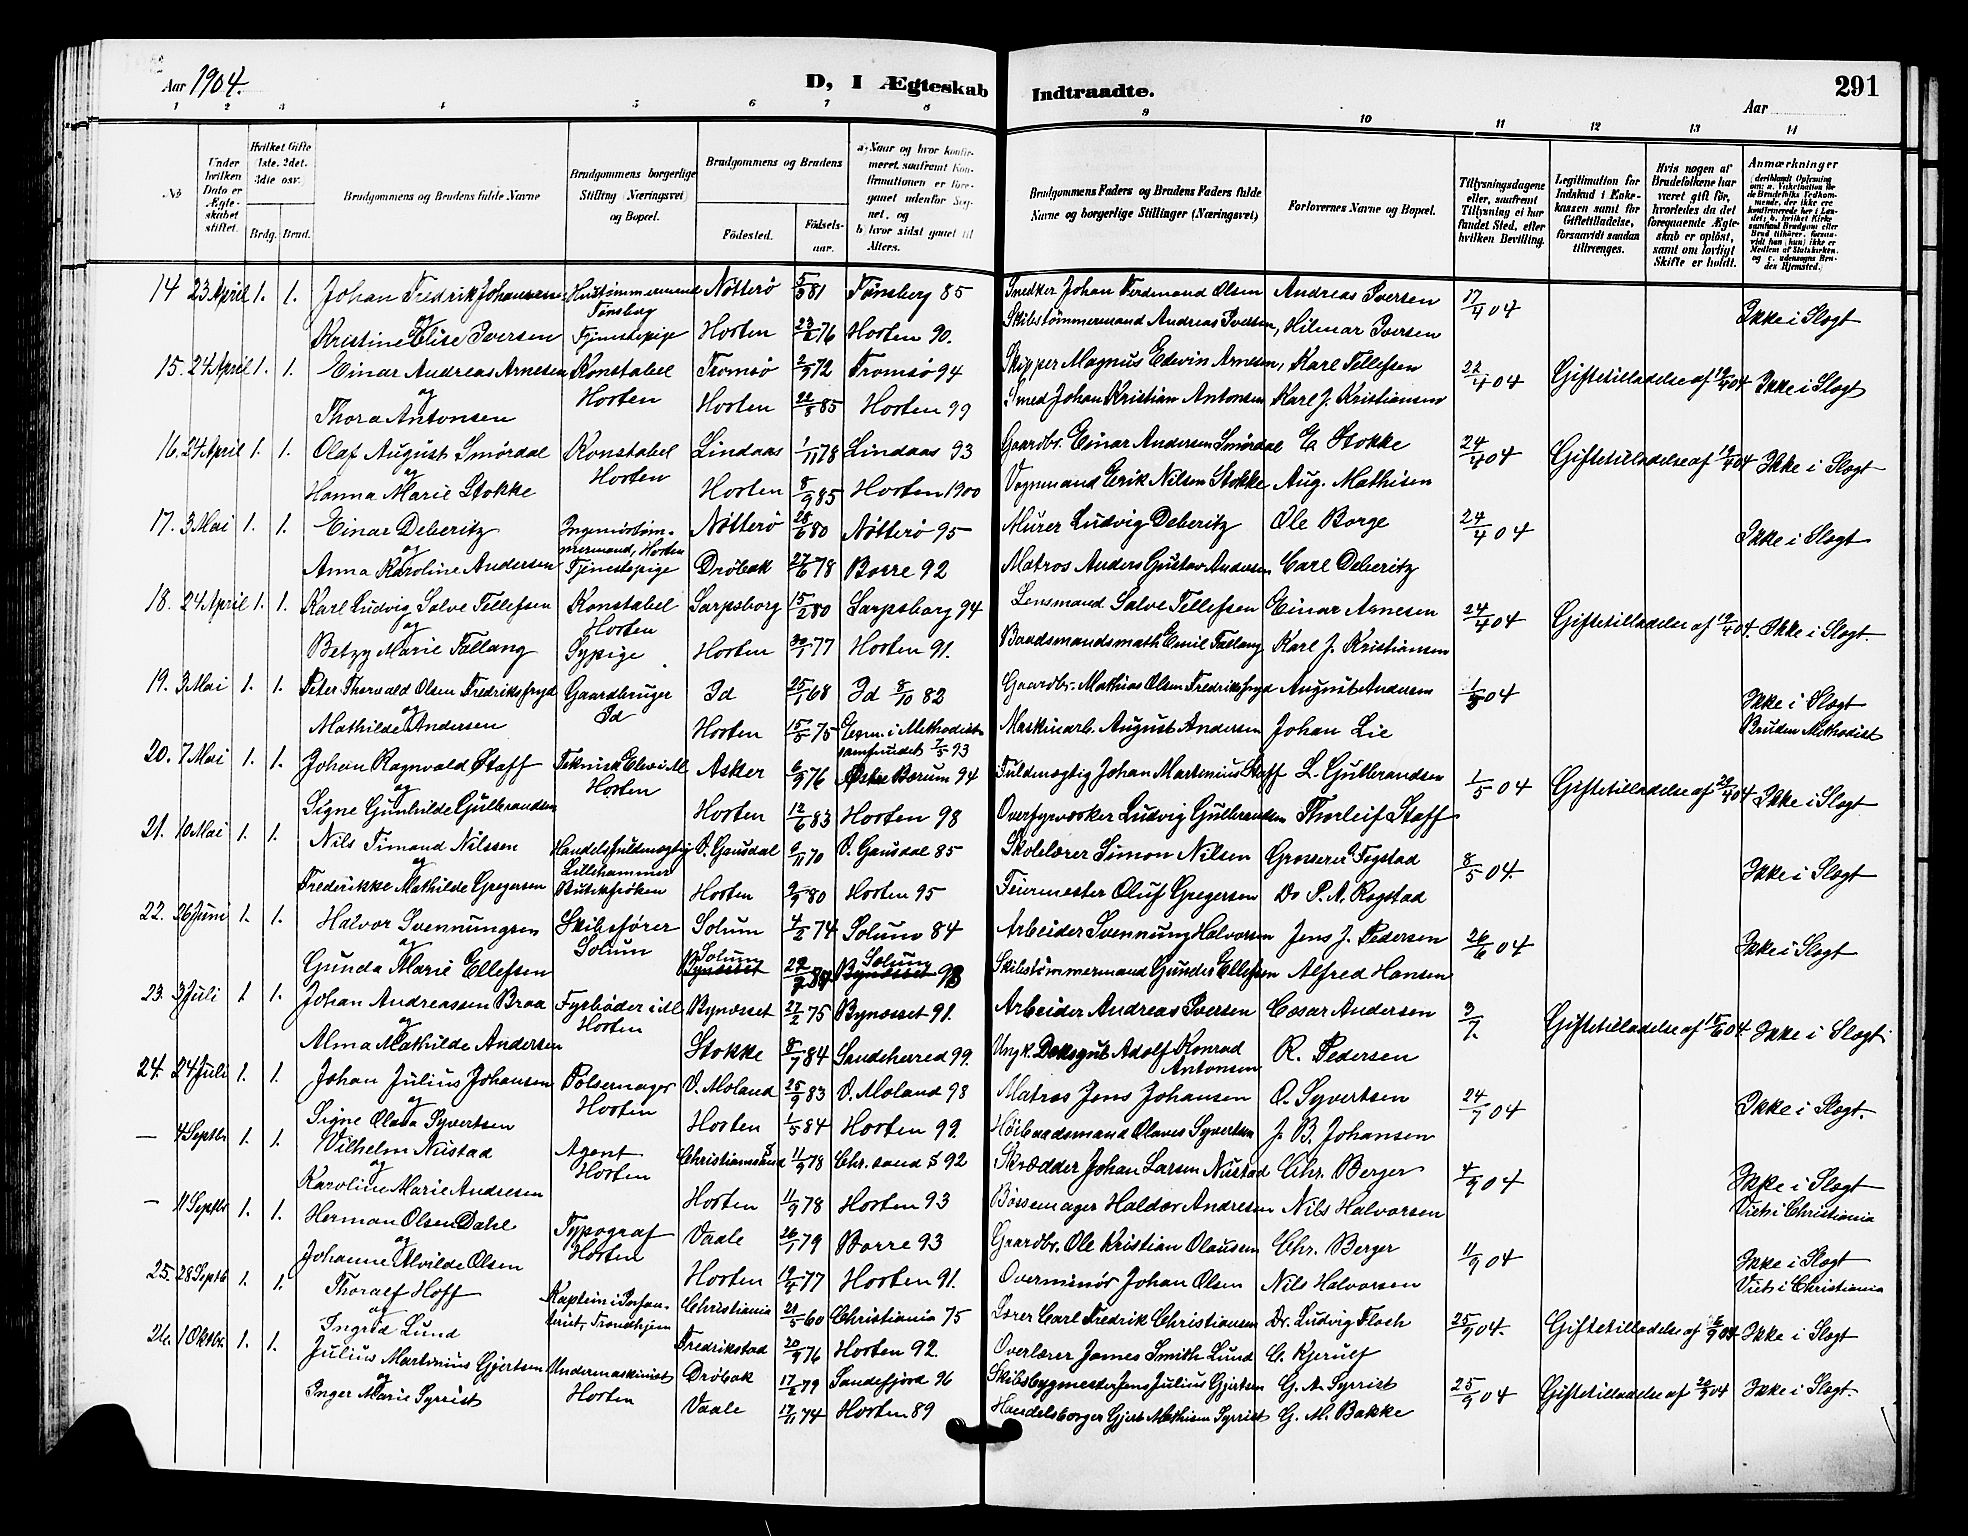 Aar 1904.
D, I Ægteskab Indtraadte.
Aar
291
1 2 3 4 5 6 7 8 9 10 11 12 13 14
No
Under hvilken Dato er Ægteskabet stiftet.
Hvilket Gifte (1ste. 2det. 3die osv.)
Brdg. Brud.
Brudgommens og Brudens fulde Navne
Brudgommens borgerlige Stilling (Næringsvei) og Bopæl.
Brudgommens og Brudens
Fødested. Fødselsaar.
a) Naar og hvor konfirmeret, saafremt Konfirmationen er foregaaet udenfor Sognet, og
b) hvor sidst gaaet til Alters.
Brudgommens Faders og Brudens Faders fulde Navne og borgerlige Stillinger (Næringsvei)
Forlovernes Navne og Bopæl.
Tillysningsdagene eller, saafremt Tillysning ei har fundet Sted, efter hvilken Bevilling.
Legitimation for Indskud i Enkekassen samt for Giftetilladelse, forsaavidt saadan tiltrænges.
Hvis nogen af Brudefolkene har været gift før, hvorledes da det foregaaende Ægteskab er opløst, samt om lovligt Skifte er holdt.
Anmærkninger
14 23 April 1. 1. Johan Fredrik Johansen Hustømmermand Tønsberg Nøtterø 81 Tønsberg 85 Smedker Johan Ferdinand Olsen Andreas Iversen 17/4 04 Ikke i Slægt
og Kristine Elise Iversen Tjenestepige Horten 76 Horten 90. Skibstømmermand Andreas Iversen, Hilmar Iversen
15. 24 April 1. 1. Einar Andreas Arnesen Konstabel Horten Tromsø 2/9 72 Tromsø 94 Skipper Magnus Edwin Arnesen, Karl Tellefsen 22/4 04 Giftetilladelse af 19/4 04 Ikke i Slægt
og Thora Antonsen Horten 22/8 85 Horten 99 Smed Johan Kristian Antonsen Karl J. Kristiansen
16. 24 April 1. 1. Olaf August Smørdal Konstabel Horten Lindaas 1/11 78 Lindaas 93 Gaardbr. Einar Andersen Smørdal E. Stokke 24/4 04 Giftetilladelse af 19/4 04 Ikke i Slægt
og Hanna Marie Stokke Horten 8/9 85 Horten 1900 Vognmand Erik Nilsen Stokke Aug. Mathisen
17. 3 Mai 1. 1. Einar Deberitz Ingeniørtømmermand, Horten Nøtterø 28/6 80 Nøtterø 95 Murer Ludvig Deberitz Ole Borge 24/4 04 Ikke i Slægt
og Anna Karoline Andersen Tjenestepige Drøbak 27/6 78 Borre 92 Matros Anders Gustav Andersen Carl Deberitz
18. 24 April 1. 1. Karl Ludvig Salve Tellefsen Konstabel Horten Sarpsborg 15/2 80 Sarpsborg 94 Lensmand Salve Tellefsen Einar Arnesen 24/4 04 Giftetilladelse af 19/4 04. Ikke i Slægt.
og Betzy Marie Fallang Sypige Horten 77 Horten 91. Baadsmandsmath Emil Fallang Karl J. Kristiansen
19. 3 Mai 1. 1. Peter Thorvald Olsen Fredriksfryd Gaardbruger Id Id 25/1 68 Id 8/10 82 Gaardbr. Mathias Olsen Fredriksfryd August Andersen 1/5 04 Ikke i Slægt
og Mathilde Andersen Horten 15/5 75 i Methodistsamfundet 7/5 93 Maskinarb. August Andersen Johan Lie Bruden Methodist
20. 7 Mai 1. 1. Johan Ragnvald Staff Teknisk Elev i M Horten Asker 6/9 76 Østre Bærum 94 Fuldmægtig Johan Martinius Staff L. Gulbrandsen 1/5 04 Giftetilladelse af 29/4 04 Ikke i Slægt
og Signe Gunhilde Gulbrandsen Horten 12/6 83 Horten 98 Overfyrvorker Ludvig Gulbrandsen Thorleif Staff
21. 10 Mai 1. 1. Nils Timand Nilssen Handelsfuldmægtig Lillehammer Ø. Gausdal 9/11 70 Ø. Gausdal 85 Skolelærer Simon Nilsen Grosserer Fogstad 8/5 04. Ikke i Slægt
og Frederikke Mathilde Gregersen Butikfrøken Horten 9/9 80 Horten 95 Feiermester Oluf Gregersen Do P. A. Rogstad
22. 26 Juni 1. 1. Halvor Svennungsen Skibsfører Solum Solum 4/2 74 Solum 84 Arbeider Svennung Halvorsen Jens J. Pedersen 26/6 04 Ikke i Slægt
og Gunda Marie Ellefsen Solum Bynæsset Solum Bynæsset 98 Skibstømmermand Gunder Ellefsen Alfred Hansen
23. 3 Juli 1 1. Johan Andreassen Braa Fyrbøder i M Horten Bynæsset 27/2 75 Bynæsset 91. Arbeider Andreas Iversen Cæsar Andersen 3/7. Giftetilladelse af 15/6 04 Ikke i Slægt
og Alma Mathilde Andersen Stokke 8/7 84 Sandeherred 99. Ungk. Doksgut Adolf Konrad Antonsen R. Pedersen
24. 24 Juli 1. 1. Johan Julius Johansen Pølsemager Horten Ø. Moland 25/9 83 Ø. Moland 98 Matros Jens Johansen O. Syvertsen 24/7 04 Ikke i Slægt.
og Signe Olava Syvertsen Horten 1/5 84 Horten 99. Høibaadsmand Olaves Syvertsen J. B. Johansen
— 4 Septbr 1. 1. Vilhelm Nustad Agent Horten Christianssund 11/9 78 Chr. sand S 92 Skrædder Johan Larsen Nustad Chr. Berger 4/9 04 Ikke i Slægt
og Karoline Marie Andresen Horten 11/9 78 Horten 93 Bøssemager Haldor Andresen Nils Halvorsen Viet i Christiania
— 11 Septbr 1. 1. Herman Olsen Dahl Typograf Horten Vaale 26/1 79 Borre 93 Gaardbr. Ole Kristian Olausen Chr. Berger 11/9 04 Ikke i Slægt
og Johanne Alvilde Olsen Horten 19/4 77 Horten 91. Overminør Johan Olsen Nils Halvorsen Viet i Christiania
25. 28 Septb 1. 1. Thoralf Hoff Kaptein i Infanteriet, Trondhjem Christiania 21/5 60 Christiania 75 Lærer Carl Fredrik Christiansen Dr. Ludvig Floch 25/9 04. Giftetilladelse af 16/9 04 Ikke i Slægt
og Ingrid Lund Fredrikstad 20/9 76 Horten 92. Overlærer James Smith Lund C. Kjerulf
26. 1 Oktbr. 1. 1. Julius Martinius Gjertsen Undermaskinist Horten Drøbak 17/2 79 Sandefjord 96 Skibsbygmester Jens Julius Gjertsen G. A. Syrrist 25/9 04 Giftetilladelse af 04 Ikke i Slægt.
og Inger Marie Syrrist Vaale 17/11 74 Horten 89 Handelsborger Gjert Mathisen Syrrist G. M. Bakke